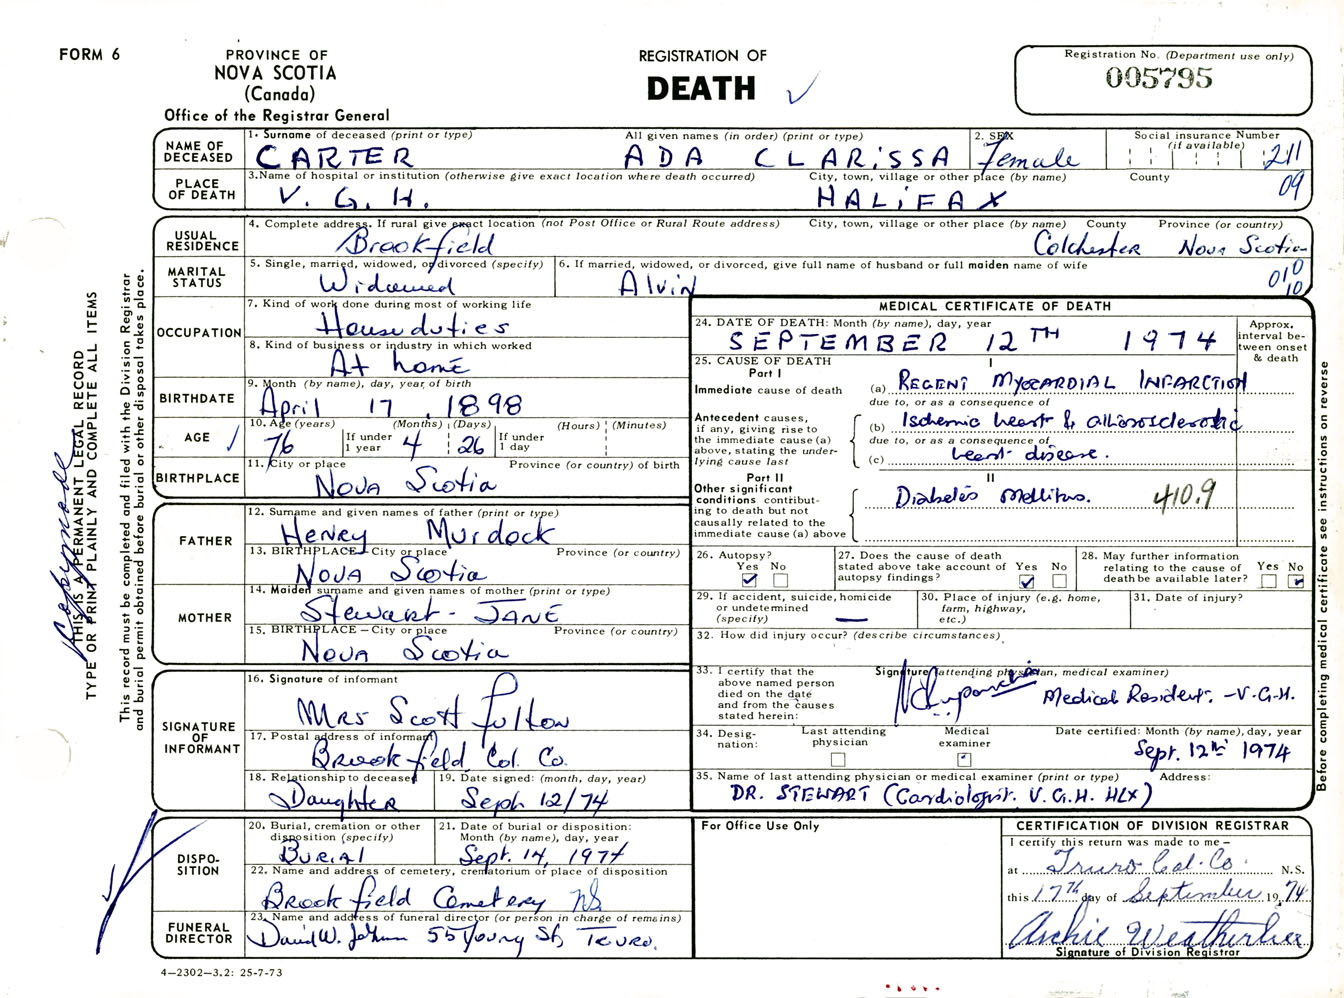 FORM 6
PROVINCE OF
NOVA SCOTIA
(Canada)
Office of the Registrar General
REGISTRATION OF
DEATH
Registration No. (Department use only)
005795
NAME OF DECEASED
1. Surname of deceased (print or type) All given names (in order) (print or type)
CARTER ADA CLARISSA
2. SEX
Female
Social insurance Number
(if available)
211
PLACE OF DEATH
3. Name of hospital or institution (otherwise give exact location where death occurred) City, town, village or other place (by name) County
V. G. H. HALIFAX
09
USUAL RESIDENCE
4. Complete address. If rural give exact location (not Post Office or Rural Route address) City, town, village or other place (by name) County Province (or country)
Brookfield Colchester Nova Scotia
MARITAL STATUS
5. Single, married, widowed, or divorced (specify)
Widowed
6. If married, widowed, or divorced, give full name of husband or full maiden name of wife
Alvin
010
10
OCCUPATION
7. Kind of work done during most of working life
House duties
8. Kind of business or industry in which worked
At home
BIRTHDATE
9. Month (by name), day, year of birth
April 17, 1898
AGE
10. Age (years) (Months) (Days) (Hours) (Minutes)
76 If under 1 year 4 26 If under 1 day
BIRTHPLACE
11. City or place Province (or country) of birth
Nova Scotia
FATHER
12. Surname and given names of father (print or type)
Henry Murdock
13. BIRTHPLACE - City or place Province (or country)
Nova Scotia
MOTHER
14. Maiden surname and given names of mother (print or type)
Stewart - JANE
15. BIRTHPLACE - City or place Province (or country)
Nova Scotia
SIGNATURE OF INFORMANT
16. Signature of informant
Mrs Scott Fulton
17. Postal address of informant
Brookfield Col. Co.
18. Relationship to deceased
Daughter
19. Date signed: (month, day, year)
Seph 12/74
DISPO-
SITION
20. Burial, cremation or other disposition (specify)
Burial
21. Date of burial or disposition: Month (by name), day, year
Sept. 14, 1974
22. Name and address of cemetery, crematorium or place of disposition
Brookfield Cemetery NS
FUNERAL DIRECTOR
23. Name and address of funeral director (or person in charge of remains)
David W. 55 Young St, Truro.
4-2302-3.2: 25-7-73
MEDICAL CERTIFICATE OF DEATH
24. DATE OF DEATH: Month (by name), day, year
SEPTEMBER 12TH 1974
Approx. interval be-
tween onset & death
25. CAUSE OF DEATH
Part I
I
Immediate cause of death
(a) RECENT MYOCARDIAL INFARCTION
due to, or as a consequence of
Antecedent causes, if any, giving rise to the immediate cause (a) above, stating the under-
lying cause last
(b) Ischemic heart & atherosclerotic
due to, or as a consequence of
(c) heart disease.
Part II
II
Other significant conditions contribut-
ing to death but not causally related to the immediate cause (a) above
Diabetes Mellitus. 410.9
26. Autopsy?
Yes No
27. Does the cause of death stated above take account of autopsy findings?
Yes No
28. May further information relating to the cause of death be available later?
Yes No
29. If accident, suicide, homicide or undetermined (specify)
30. Place of injury (e.g. home, farm, highway, etc.)
31. Date of injury?
32. How did injury occur? (describe circumstances)
33. I certify that the above named person died on the date and from the causes stated herein:
Signature (attending physician, medical examiner)
Medical Resident. - V.G.H.
34. Desig-
nation:
Last attending physician
Medical examiner
Date certified: Month (by name), day, year
Sept. 12th 1974
35. Name of last attending physician or medical examiner (print or type) Address:
DR. STEWART (Cardiologist. V.G.H. HLX)
For Office Use Only
CERTIFICATION OF DIVISION REGISTRAR
I certify this return was made to me -
at Truro Col. Co. N.S.
this 17th day of September 1974
Archie Weatherbee
Signature of Division Registrar
Copy made
THIS IS A PERMANENT LEGAL RECORD
TYPE OR PRINT PLAINLY AND COMPLETE ALL ITEMS
This record must be completed and filed with the Division Registrar
and burial permit obtained before burial or other disposal takes place.
Before completing medical certificate see instructions on reverse